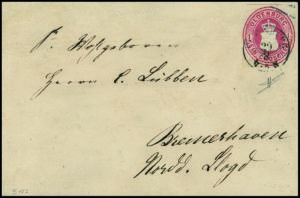 S. Wohlgeboren
Herrn C. Lübben
Bremerhaven
Nordd. Lloyd
OLDENBURG